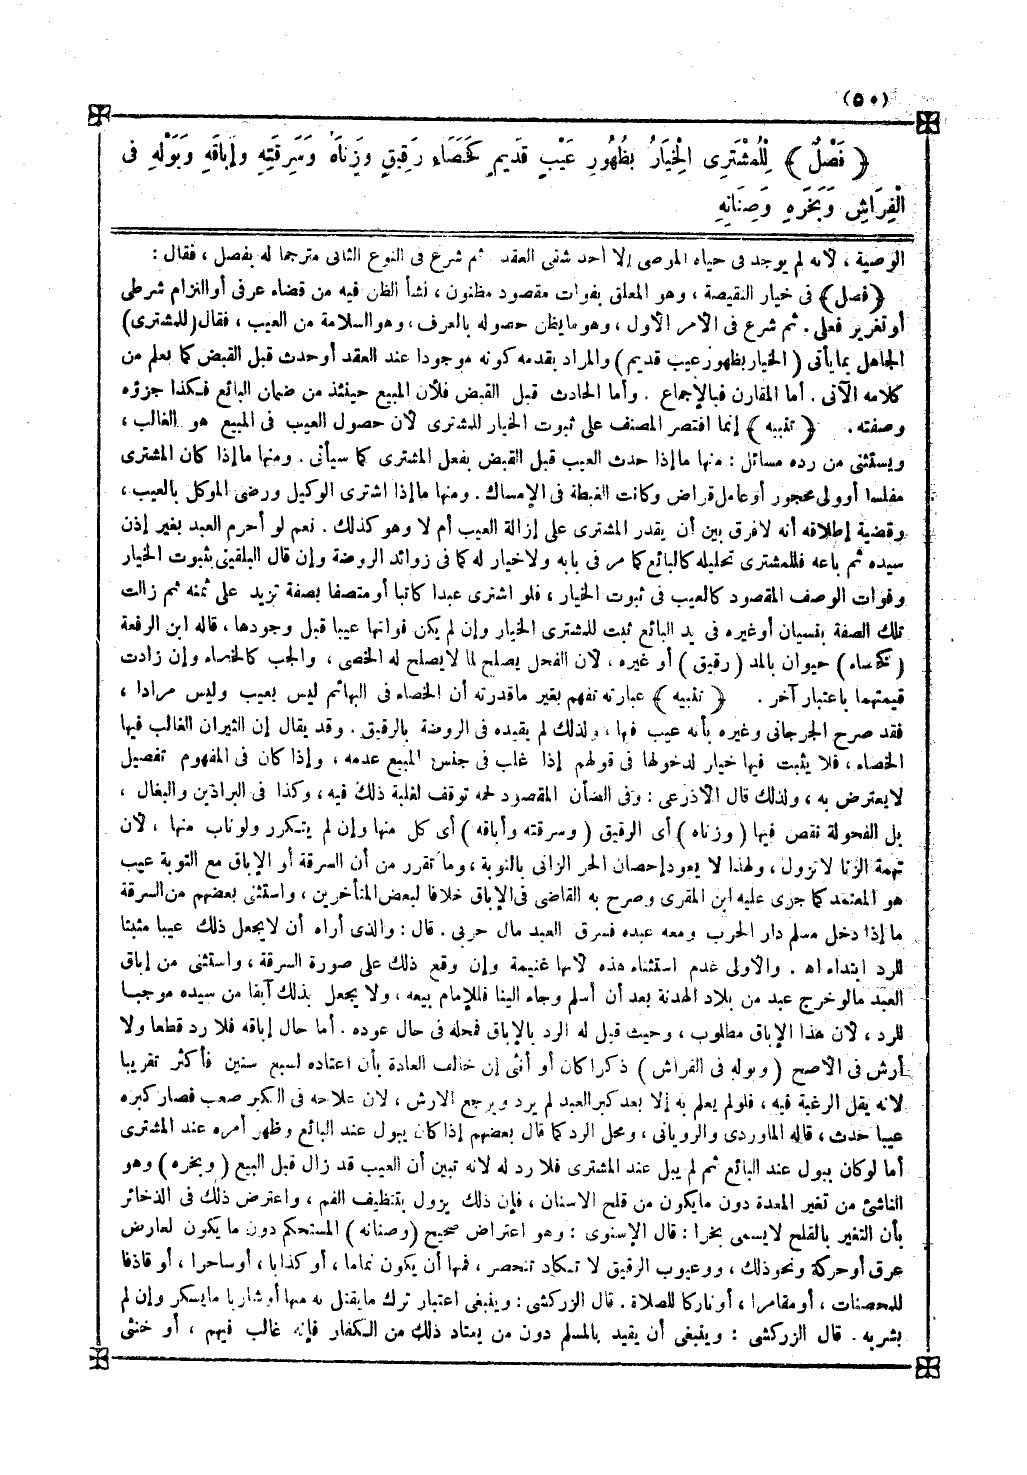 (٥٠)
﴿ فَصْلٌ ﴾ لِلْمُشْتَرِى الْخِيَارُ بِظُهُورِ عَيْبٍ قَدِيمٍ كَخَصَاءِ رَقِيقٍ وَزِنَاهُ وَسَرِقَتِهِ وَإِبَاقِهِ وَبَوْلِهِ فى
الْفِرَاشِ وَبَخَرِهِ وَصِنَانِهِ
الوصية ، لأنه لم يوجد فى حياة الموصى إلا أحد شقى العقد ثم شرع فى النوع الثانى مترجما له بفصل ، فقال :
﴿ فصل ﴾ فى خيار النقيصة ، وهو المعلق بفوات مقصود مظنون ، نشأ الظن فيه من قضاء عرفى أو التزام شرطى
أو تغرير فعلى . ثم شرع فى الأمر الأول ، وهو ما يظن حصوله بالعرف ، وهو السلامة من العيب ، فقال (للمشترى)
الجاهل بما يأتى ( الخيار بظهور عيب قديم ) والمراد بقدمه كونه موجودا عند العقد أو حدث قبل القبض كما يعلم من
كلامه الآتى . أما المقارن فبالإجماع . وأما الحادث قبل القبض فلأن المبيع حينئذ من ضمان البائع فكذا جزؤه
وصفته . ﴿ تنبيه ﴾ إنما اقتصر المصنف على ثبوت الخيار للمشترى لأن حصول العيب فى المبيع هو الغالب ،
ويستثنى من رده مسائل : منها ما إذا حدث العيب قبل القبض بفعل المشترى كما سيأتى . ومنها ما إذا كان المشترى
مفلسا أو ولى محجور أو عامل قراض وكانت الغبطة فى الإمساك . ومنها ما إذا اشترى الوكيل ورضى الموكل بالعيب ،
وقضية إطلاقه أنه لا فرق بين أن يقدر المشترى على إزالة العيب أم لا وهو كذلك . نعم لو أحرم العبد بغير إذن
سيده ثم باعه فللمشترى تحليله كالبائع كما مر فى بابه ولا خيار له كما فى زوائد الروضة وإن قال البلقينى بثبوت الخيار
وفوات الوصف المقصود كالعيب فى ثبوت الخيار ، فلو اشترى عبدا كاتبا أو متصفا بصفة تزيد على ثمنه ثم زالت
تلك الصفة بنسيان أو غيره فى يد البائع ثبت للمشترى الخيار وإن لم يكن فواتها عيبا قبل وجودها ، قاله ابن الرفعة
( كخصاء ) حيوان بالمد ( رقيق ) أو غيره ، لأن الفحل يصلح لما لا يصلح له الخصى ، والجب كالخصاء وإن زادت
قيمتهما باعتبار آخر . ﴿ تنبيه ﴾ عبارته تفهم بغير ما قدرته أن الخصاء فى البهائم ليس بعيب وليس مرادا ،
فقد صرح الجرجانى وغيره بأنه عيب فيها ، ولذلك لم يقيده فى الروضة بالرقيق . وقد يقال إن الثيران الغالب فيها
الخصاء ، فلا يثبت فيها خيار لدخولها فى قولهم إذا غلب فى جنس المبيع عدمه ، وإذا كان فى المفهوم تفصيل
لا يعترض به ، ولذلك قال الأذرعى : وفى الضأن المقصود لحمه توقف لغلبة ذلك فيه ، وكذا فى البراذين والبغال ،
بل الفحولة نقص فيها ( وزناه ) أى الرقيق ( وسرقته وأباقه ) أى كل منها وإن لم يتكرر ولو تاب منها ، لأن
تهمة الزنا لا تزول ، ولهذا لا يعود إحصان الحر الزانى بالتوبة ، وما تقرر من أن السرقة أو الإباق مع التوبة عيب
هو المعتمد كما جرى عليه ابن المقرى وصرح به القاضى فى الإباق خلافا لبعض المتأخرين ، واستثنى بعضهم من السرقة
ما إذا دخل مسلم دار الحرب ومعه عبده فسرق العبد مال حربى . قال : والذى أراه أن لا يجعل ذلك عيبا مثبتا
للرد ابتداء اه . والأولى عدم استثناء هذه لأنها غنيمة وإن وقع ذلك على صورة السرقة ، واستثنى من إباق
العبد ما لو خرج عبد من بلاد الهدنة بعد أن أسلم وجاء الينا فللإمام بيعه ، ولا يجعل بذلك آبقا من سيده موجبا
للرد ، لأن هذا الإباق مطلوب ، وحيث قيل له الرد بالإباق فمحله فى حال عوده . أما حال إباقه فلا رد قطعا ولا
أرش فى الأصح ( وبوله فى الفراش ) ذكرا كان أو أنثى إن خالف العادة بأن اعتاده لسبع سنين فأكثر تقريبا
لأنه يقل الرغبة فيه ، فلو لم يعلم به إلا بعد كبر العبد لم يرد ويرجع الارش ، لأن علاجه فى الكبر صعب فصار كبره
عيبا حدث ، قاله الماوردى والرويانى ، ومحل الرد كما قال بعضهم إذا كان يبول عند البائع وظهر أمره عند المشترى
أما لو كان يبول عند البائع ثم لم يبل عند المشترى فلا رد له لأنه تبين أن العيب قد زال قبل البيع ( وبخره ) وهو
الناشئ من تغير المعدة دون ما يكون من قلح الاسنان ، فإن ذلك يزول بتنظيف الفم ، واعترض ذلك فى الذخائر
بأن التغير بالقلح لا يسمى بخرا : قال الإسنوى : وهو اعتراض صحيح ( وصنانه ) المستحكم دون ما يكون لعارض
عرق أو حركة ونحو ذلك ، ووعيوب الرقيق لا تكاد تنحصر ، فمنها أن يكون نماما ، أو كذابا ، أو ساحرا ، أو قاذفا
للمحصنات ، أو مقامرا ، أو تاركا للصلاة . قال الزركشى : وينبغى اعتبار ترك ما يقتل به منها أو شاربا ما يسكر وإن لم
يشربه . قال الزركشى : وينبغى أن يقيد بالمسلم دون من يعتاد ذلك من الكفار فإنه غالب فيهم ، أو خنثى